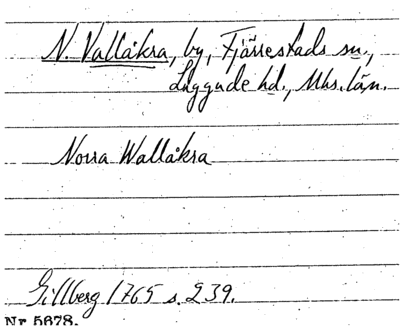 N. Vallåkra, by, Fjärrestads sn.,
Luggude hd., Mhs. län.
Norra Wallåkra
Gillberg 1765 s. 239.
Nr 5678.